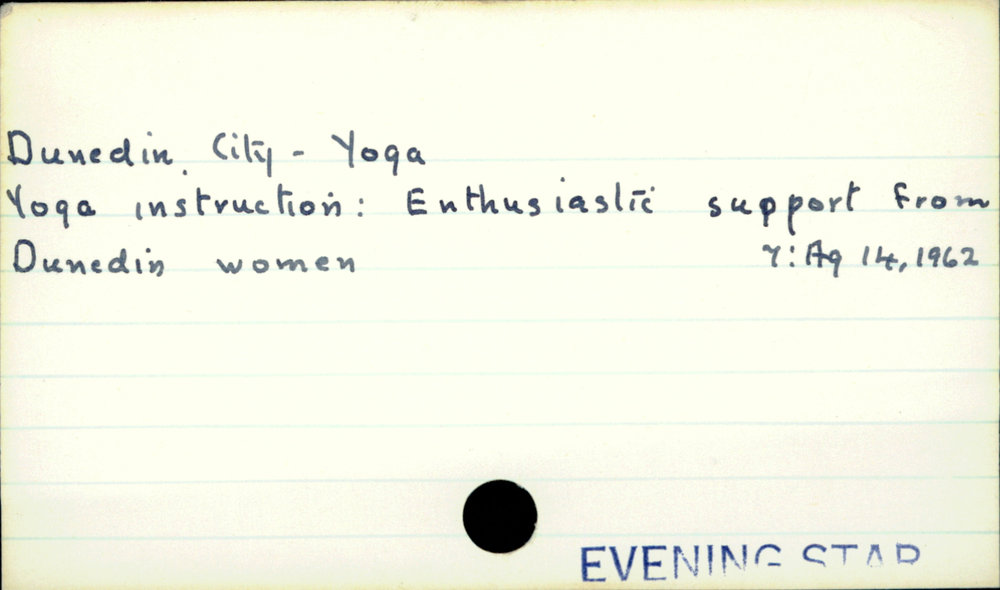 Dunedin City - Yoga
Yoga instruction: Enthusiastic support from
Dunedin women 7: Ag 14, 1962
EVENING STAR